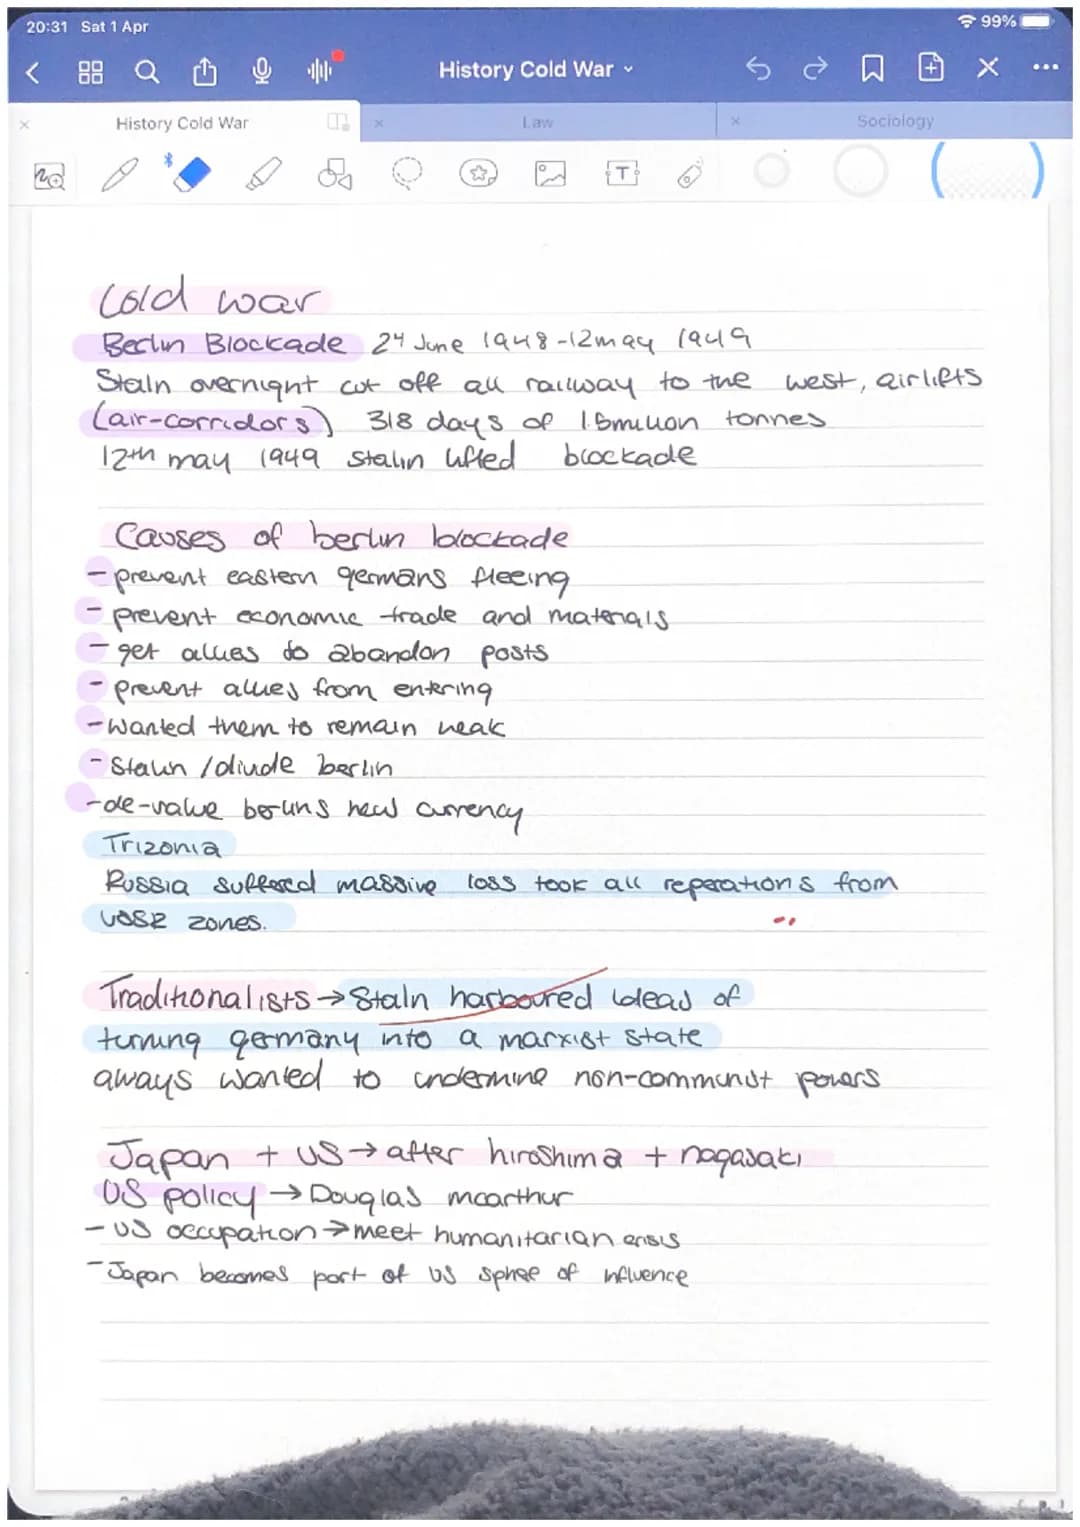 20:31 Sat 1 Apr 99%
History Cold War
History Cold War Law Sociology
Cold war
Berlin Blockade 24 June 1948-12may 1949
Staln overnight cut off all railway to the west, airlifts
(air-corridors) 318 days of 1.5million tonnes
12th may 1949 Stalin lifted blockade
Causes of berlin blockade
- prevent eastern germans fleeing
- prevent economic trade and materials
- get allies to abandon posts
- prevent allies from entering
- wanted them to remain weak
- Stalin / divide berlin
- de-value berlins new currency
Trizonia
Russia suffered massive loss took all reperations from
USSR zones.
Traditionalists → Staln harboured ideas of
turning germany into a marxist state
aways wanted to undermine non-communist powers
Japan + US → after hiroshima + nagasaki
US policy → Douglas mcarthur
- US occupation → meet humanitarian crisis
- Japan becomes part of US sphee of influence